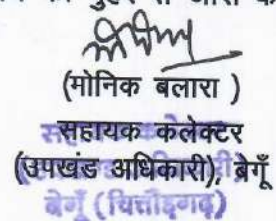 (मोनिक बलारा )
सहायक कलेक्टर
(उपखंड अधिकारी), बेगूँ
बेगूँ (चित्तौड़गढ़)